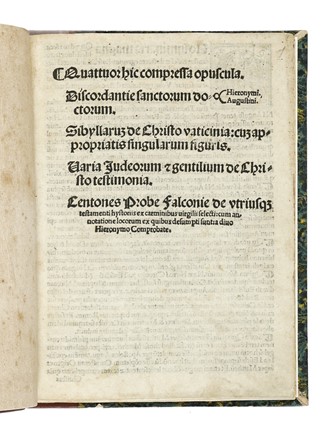 Quattuor hic compressa opuscula.
Discordantie sanctorum do- Hieronymi.
ctorum. Augustini.
Sibyllarum de Christo vaticinia: cum ap-
propriatis singularum figuris.
Varia Judeorum & gentilium de Chri-
sto testimonia.
Centones Probe Falconie de vtriusque
testamenti hystoriis ex carminibus virgilii selecti: cum an-
notatione locorum ex quibus desumpti
Hieronymo Comprobate.